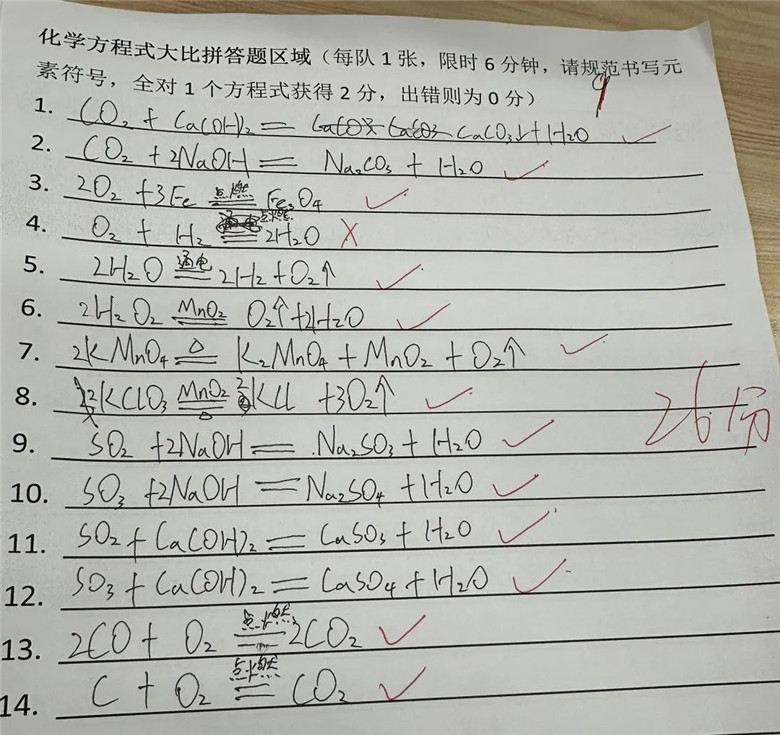 化学方程式大比拼答题区域（每队1张，限时6分钟，请规范书写元
素符号，全对1个方程式获得2分，出错则为0分）
1. CO₂ + Ca(OH)₂ = CaCO₃↓+H₂O
2. CO₂ +2NaOH = Na₂CO₃ + H₂O
3. 2O₂ +3Fe 点燃 Fe₃O₄
4. O₂ + H₂ 点燃 2H₂O
5. 2H₂O 通电 2H₂+O₂↑
6. 2H₂O₂ MnO₂ O₂↑+2H₂O
7. 2KMnO₄ △ K₂MnO₄ + MnO₂ + O₂↑
8. 2KClO₃ MnO₂ △ 2KCl +3O₂↑
9. SO₂ +2NaOH = Na₂SO₃ + H₂O
10. SO₃ +2NaOH = Na₂SO₄ +H₂O
11. SO₂ + Ca(OH)₂ = CaSO₃ + H₂O
12. SO₃ + Ca(OH)₂ = CaSO₄ + H₂O
13. 2CO + O₂ 点燃 2CO₂
14. C + O₂ 点燃 CO₂
26分